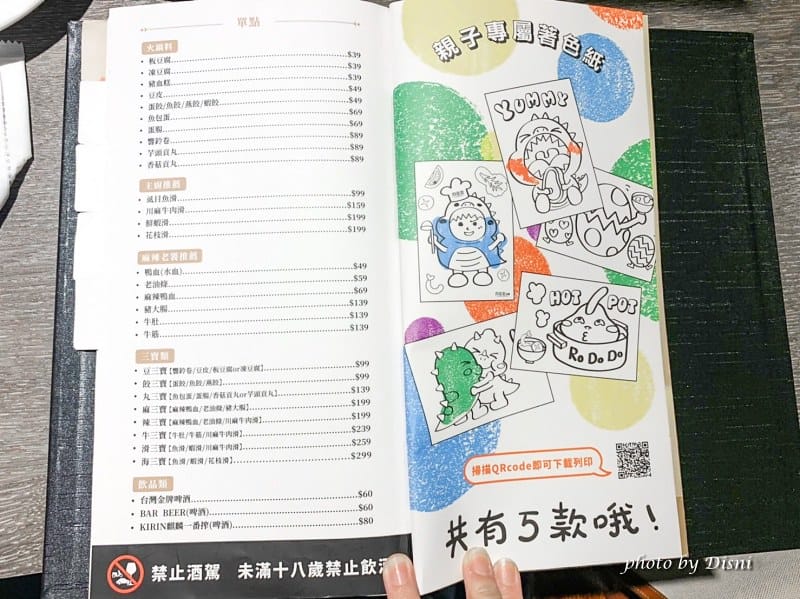 單點
火鍋料
• 板豆腐...$39
• 凍豆腐...$39
• 豬血糕...$39
• 豆皮...$49
• 蛋餃/魚餃/燕餃/蝦餃...$49
• 魚包蛋...$69
• 蛋腸...$69
• 響鈴卷...$89
• 芋頭貢丸...$89
• 香菇貢丸...$89
主廚推薦
• 虱目魚滑...$99
• 川麻牛肉滑...$159
• 鮮蝦滑...$199
• 花枝滑...$199
麻辣老饕推薦
• 鴨血(水血)...$49
• 老油條...$59
• 麻辣鴨血...$69
• 豬大腸...$139
• 牛肚...$139
• 牛筋...$139
三寶類
• 豆三寶【響鈴卷/豆皮/板豆腐or凍豆腐】...$99
• 餃三寶【蛋餃/魚餃/燕餃】...$99
• 丸三寶【魚包蛋/蛋腸/香菇貢丸or芋頭貢丸】...$139
• 麻三寶【麻辣鴨血/老油條/豬大腸】...$199
• 辣三寶【麻辣鴨血/老油條/川麻牛肉滑】...$199
• 牛三寶【牛肚/牛筋/川麻牛肉滑】...$239
• 滑三寶【魚滑/蝦滑/川麻牛肉滑】...$259
• 海三寶【魚滑/蝦滑/花枝滑】...$299
飲品類
• 台灣金牌啤酒...$60
• BAR BEER(啤酒)...$60
• KIRIN麒麟一番搾(啤酒)...$80
禁止酒駕 未滿十八歲禁止飲酒
親子專屬著色紙
YUMMY
HOT POT
Ro Do Do
掃描QRcode即可下載列印
共有5款哦！
photo by Disni